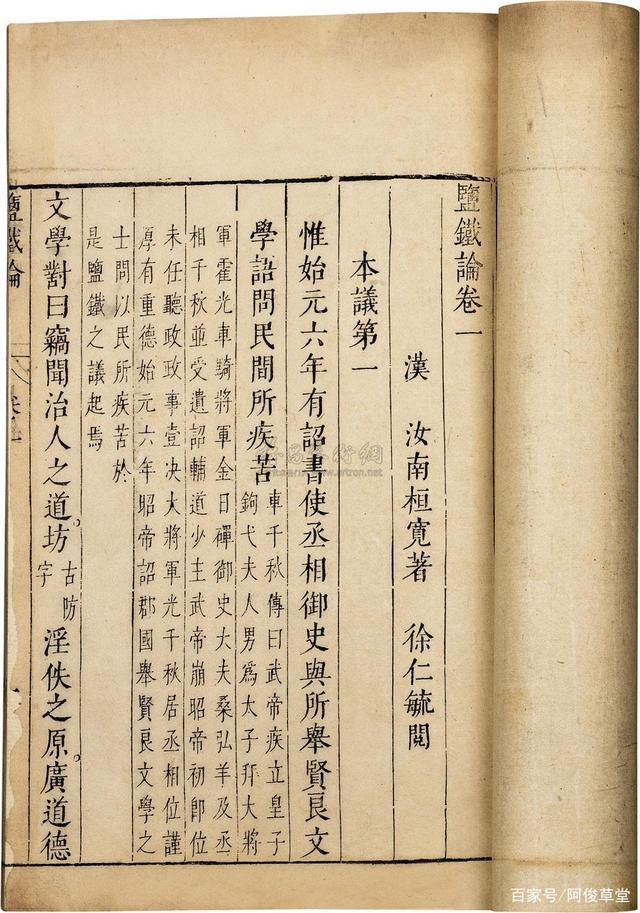 鹽鐵論卷一
漢 汝南桓寬著 徐仁毓閱
本議第一
惟始元六年有詔書使丞相御史與所舉賢良文
學語問民間所疾苦
車千秋傳曰武帝疾立皇子
鉤弋夫人男爲太子拜大將
軍霍光車騎將軍金日磾御史大夫桑弘羊及丞
相千秋並受遺詔輔道少主武帝崩昭帝初卽位
未任聽政政事壹决大將軍光千秋居丞相位謹
厚有重德始元六年昭帝詔郡國舉賢良文學之
士問以民所疾苦於
是鹽鐵之議起焉
文學對曰竊聞治人之道。坊古防字淫佚之原。廣道德
鹽鐵論
百家号/阿俊草堂